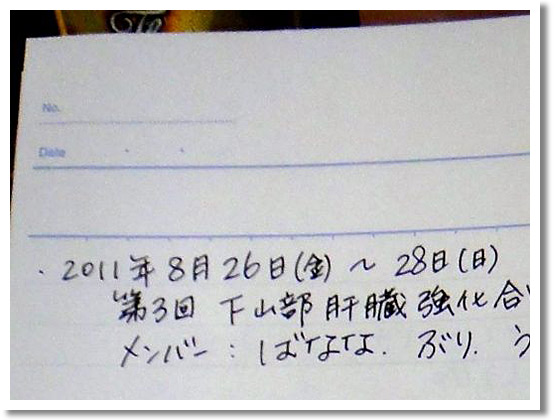 No.
Date
・2011年8月26日(金)～28日(日)
第3回 下山部 肝臓強化合
メンバー：ばななな. ぶり. う